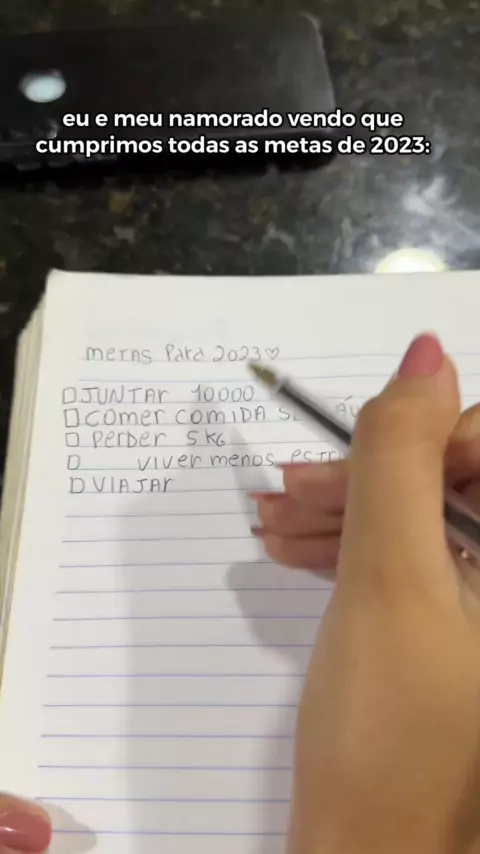 eu e meu namorado vendo que
cumprimos todas as metas de 2023:
metas para 2023♡
JUNTAR 10000
comer comIDA
perDer 5KG
viver menos
VIAJAR